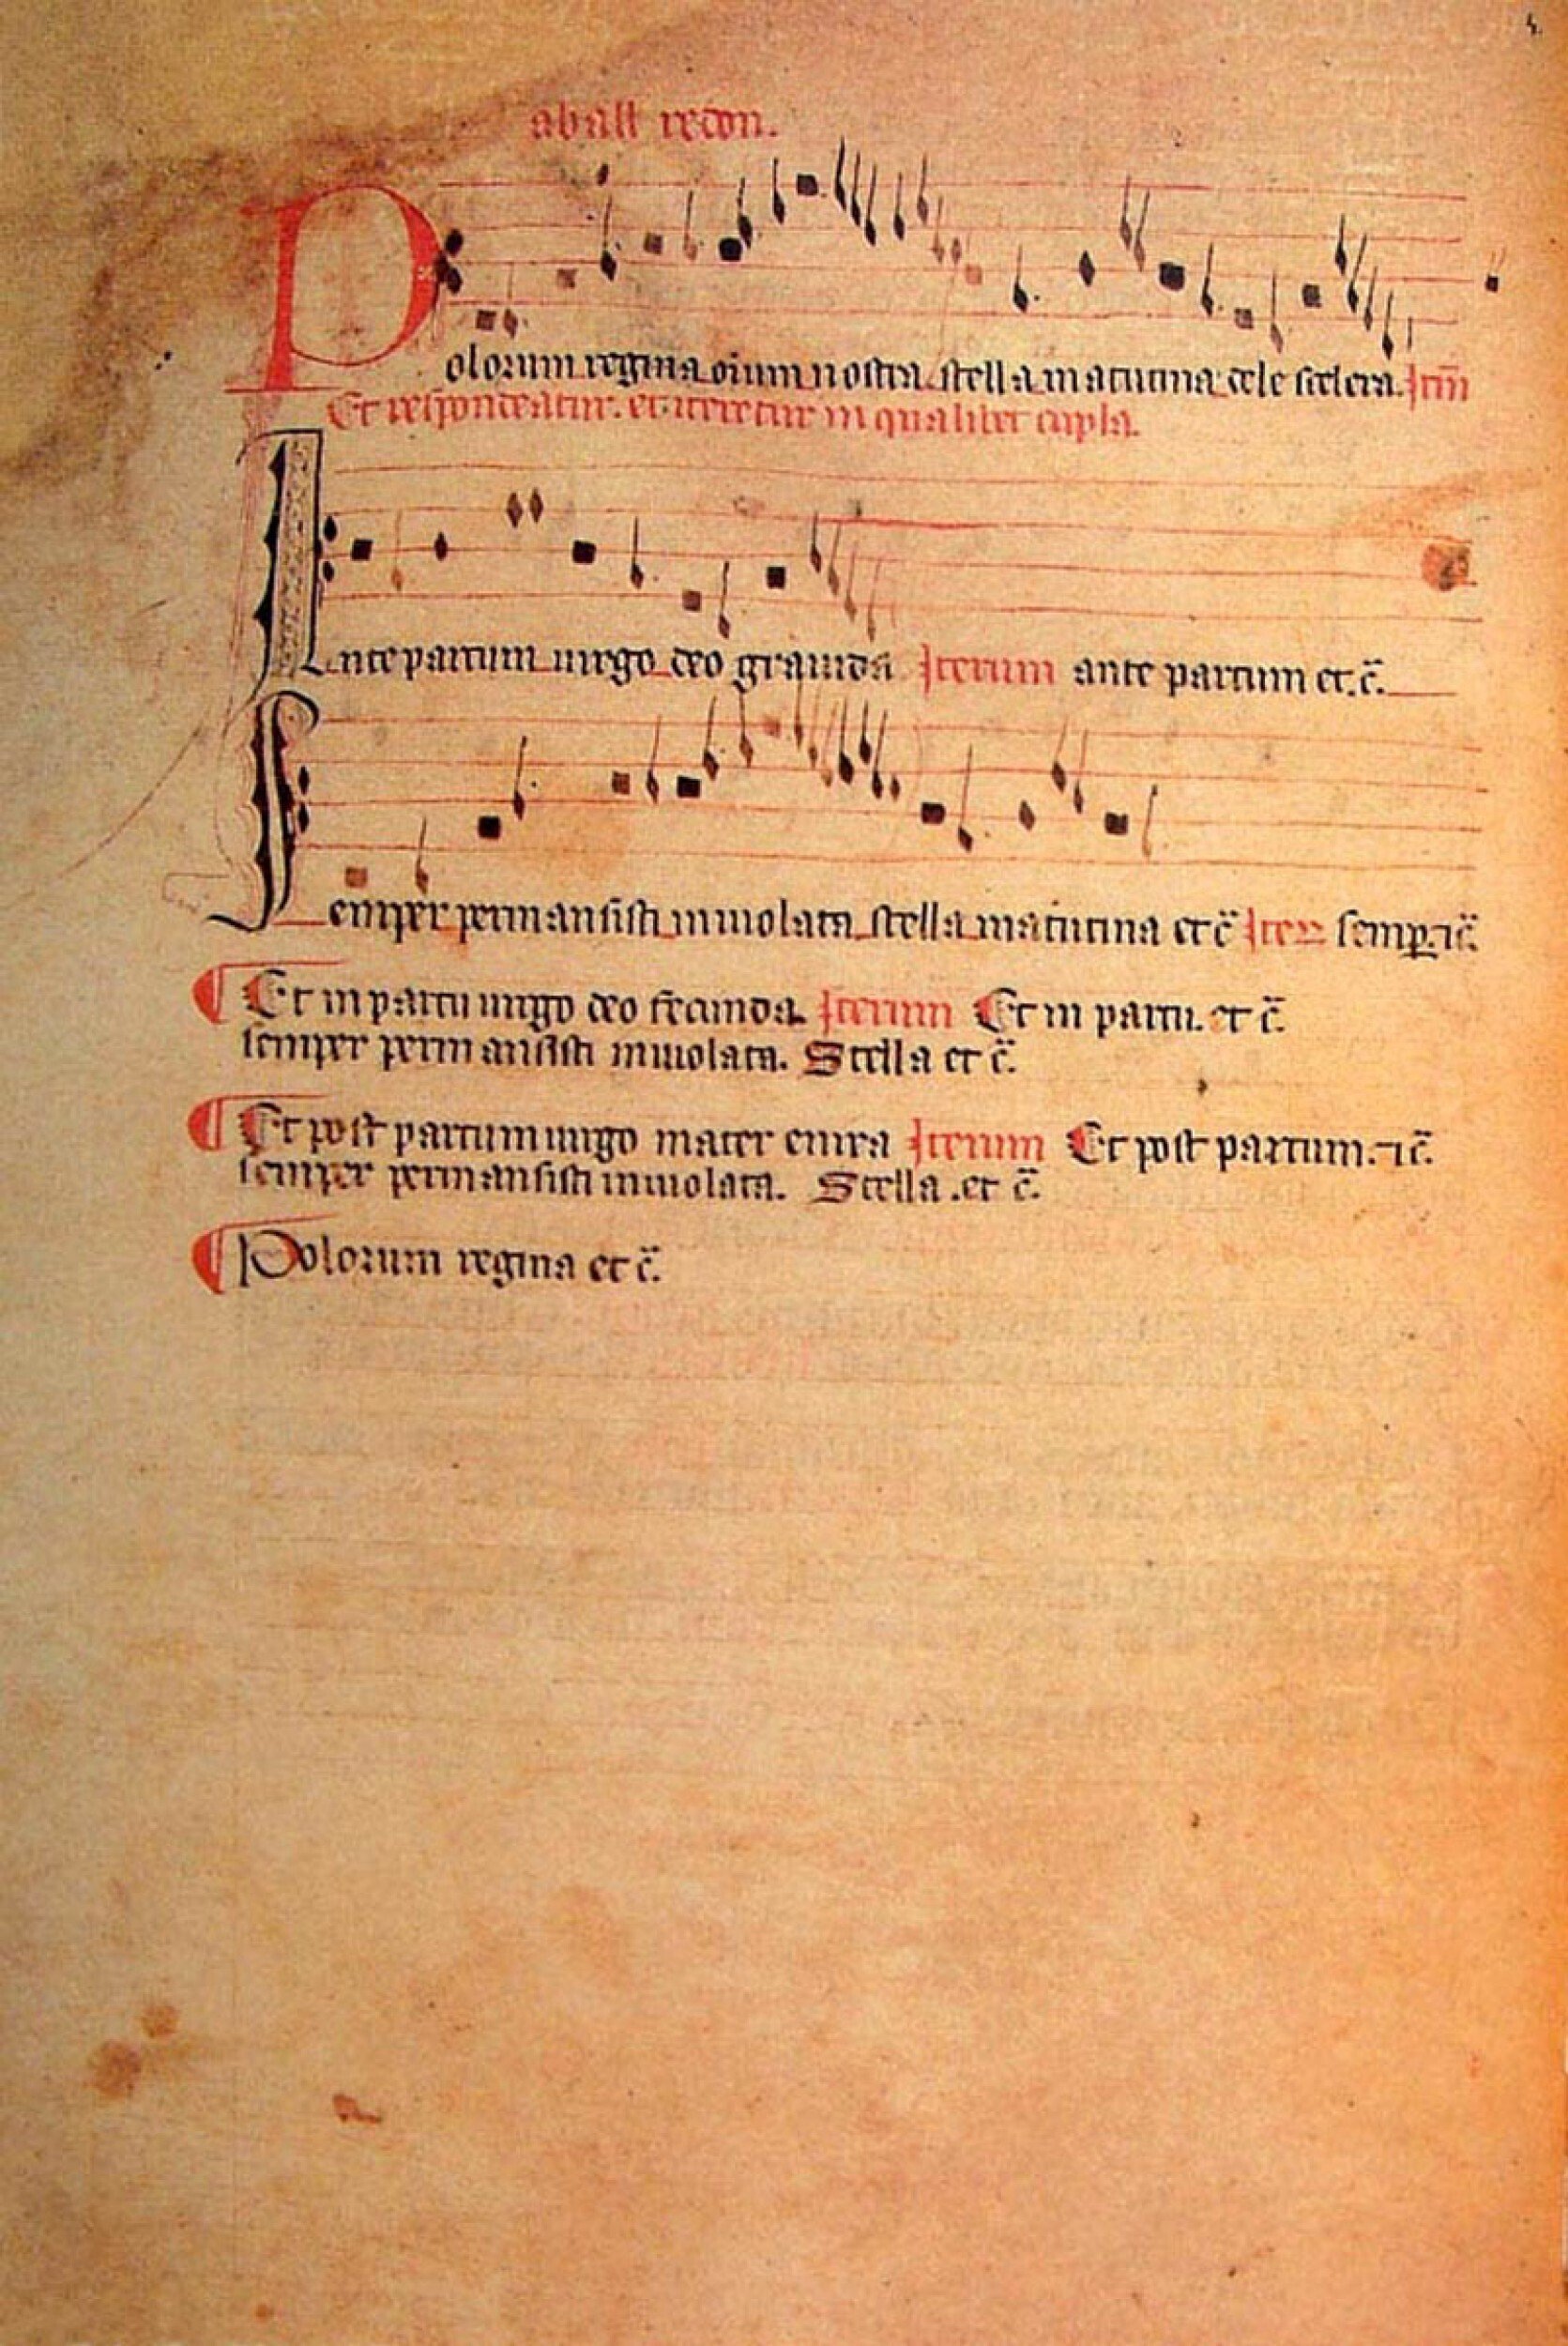 a ball redon.
Polorum regina oium nostra stella matutina dele scelera. Itm
Et respondeatur. et iteretur in qualibet cupla.
Ante partum virgo deo gravida Iterum ante partum et.c̃.
Semper permansisti inviolata stella matutina et c̃ Iter semp. ⁊c̃.
Et in partu virgo deo fecunda. Iterum Et in partu. et c̃.
semper permansisti inviolata. Stella et c̃.
Et post partum virgo mater enixa Iterum Et post partum. ⁊c̃.
semper permansisti inviolata. Stella .et c̃.
Polorum regina et c̃.